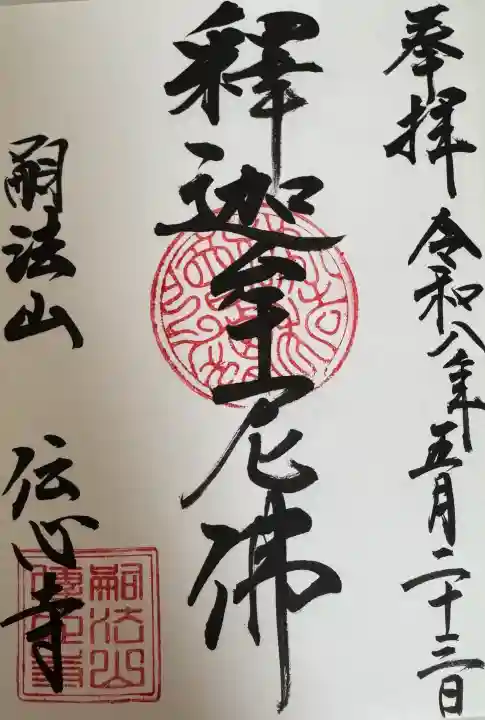 奉拝 令和八年五月二十三日
釋迦牟尼佛
嗣法山 伝心寺
嗣法山傳心寺